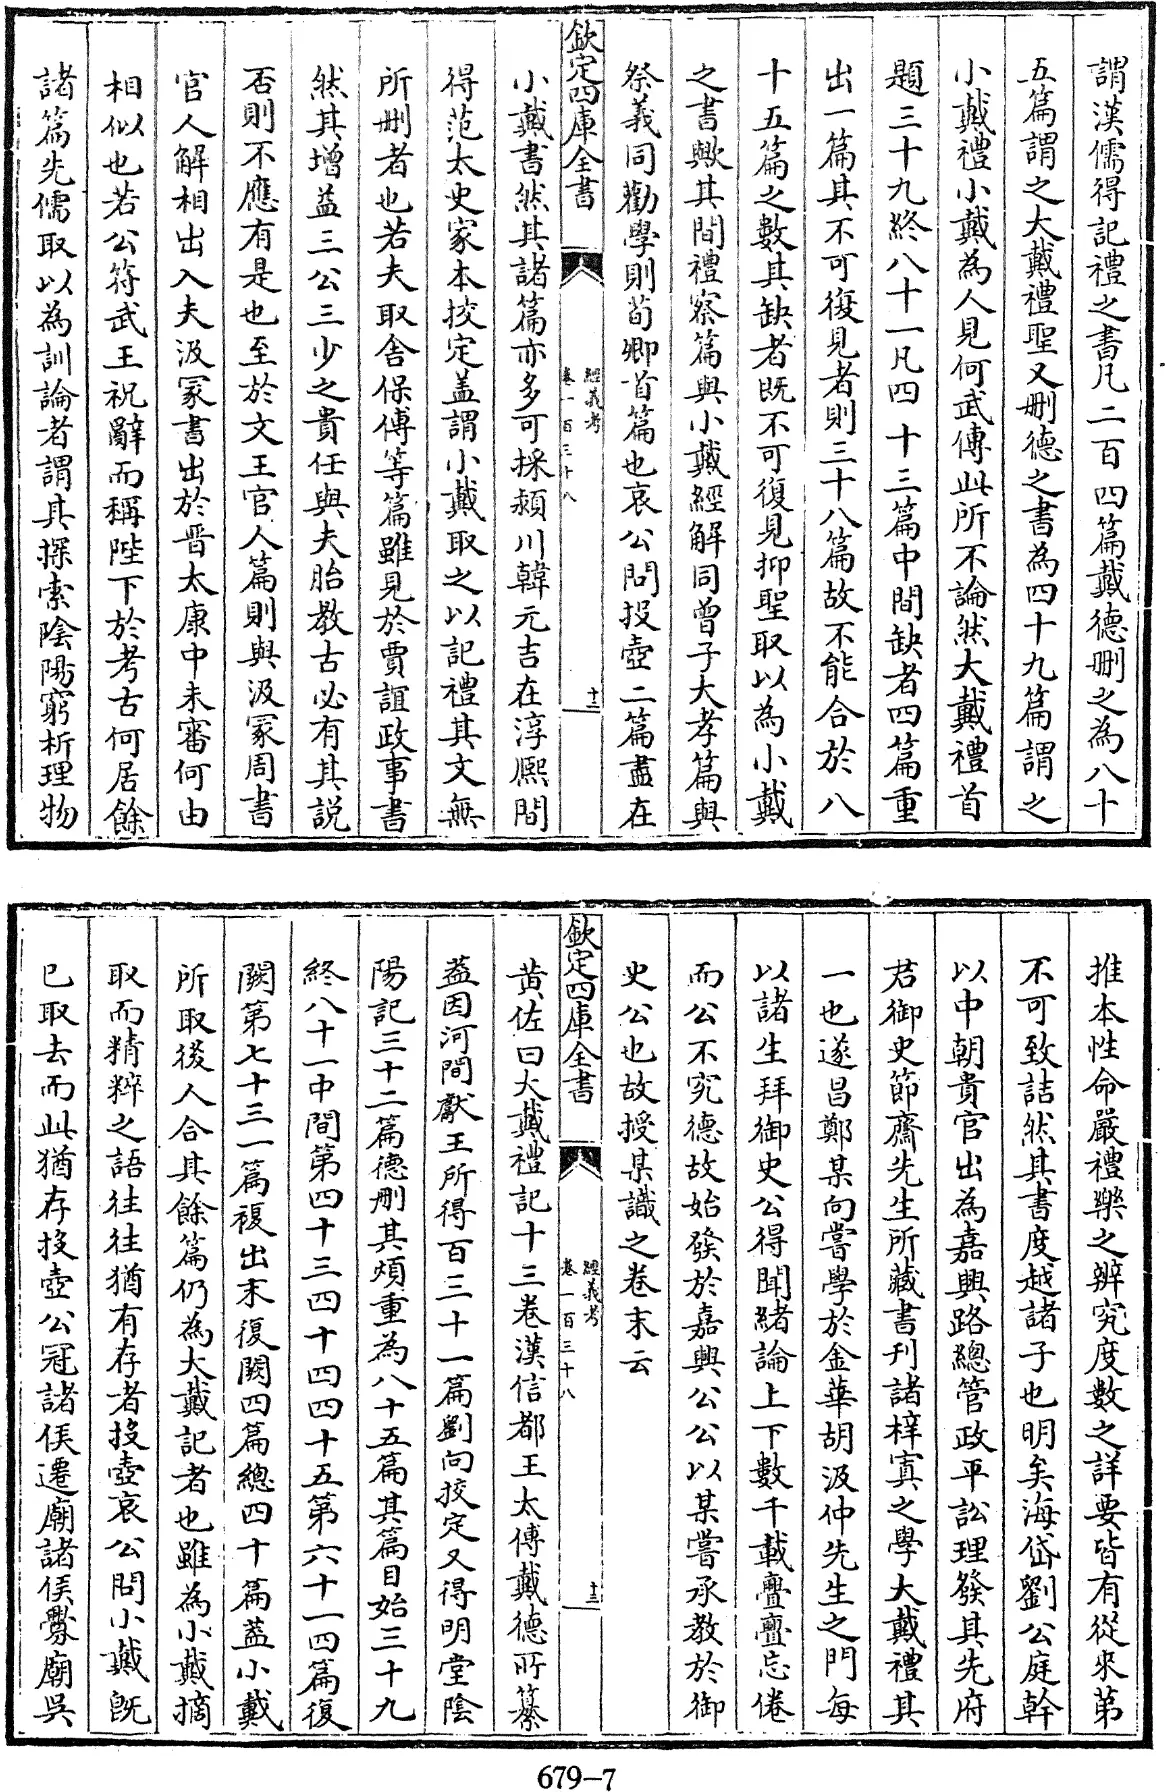 謂漢儒得記禮之書凡二百四篇戴德刪之為八十
五篇謂之大戴禮聖又刪德之書為四十九篇謂之
小戴禮小戴為人見何武傳此所不論然大戴禮首
題三十九終八十一凡四十三篇中間缺者四篇重
出一篇其不可復見者則三十八篇故不能合於八
十五篇之數其缺者既不可復見抑聖取以為小戴
之書歟其間禮察篇與小戴經解同曾子大孝篇與
祭義同勸學則荀卿首篇也哀公問投壺二篇盡在
欽定四庫全書
經義考
卷一百三十八
十二
小戴書然其諸篇亦多可採潁川韓元吉在淳熙間
得范太史家本挍定盖謂小戴取之以記禮其文無
所刪者也若夫取舍保傅等篇雖見於賈誼政事書
然其增益三公三少之貴任與夫胎教古必有其説
否則不應有是也至於文王官人篇則與汲冢周書
官人解相出入夫汲冢書出於晉太康中未審何由
相似也若公符武王祝辭而稱陛下於考古何居餘
諸篇先儒取以為訓論者謂其探索陰陽窮析理物
推本性命嚴禮樂之辨究度數之詳要皆有從來第
不可致詰然其書度越諸子也明矣海岱劉公庭幹
以中朝貴官出為嘉興路總管政平訟理發其先府
君御史節齋先生所藏書刋諸梓寘之學大戴禮其
一也遂昌鄭某向嘗學於金華胡汲仲先生之門每
以諸生拜御史公得聞緒論上下數千載亹亹忘倦
而公不究德故始發於嘉興公公以某嘗承教於御
史公也故授某識之卷末云
欽定四庫全書
經義考
卷一百三十八
十三
黄佐曰大戴禮記十三卷漢信都王太傅戴德所纂
葢因河間獻王所得百三十一篇劉向挍定又得明堂陰
陽記三十二篇德刪其煩重為八十五篇其篇目始三十九
終八十一中間第四十三四十四四十五第六十一四篇復
闕第七十三一篇複出末復闕四篇總四十篇葢小戴
所取後人合其餘篇仍為大戴記者也雖為小戴摘
取而精粹之語往往猶有存者投壺哀公問小戴既
已取去而此猶存投壺公冠諸侯遷廟諸侯釁廟吳
679-7